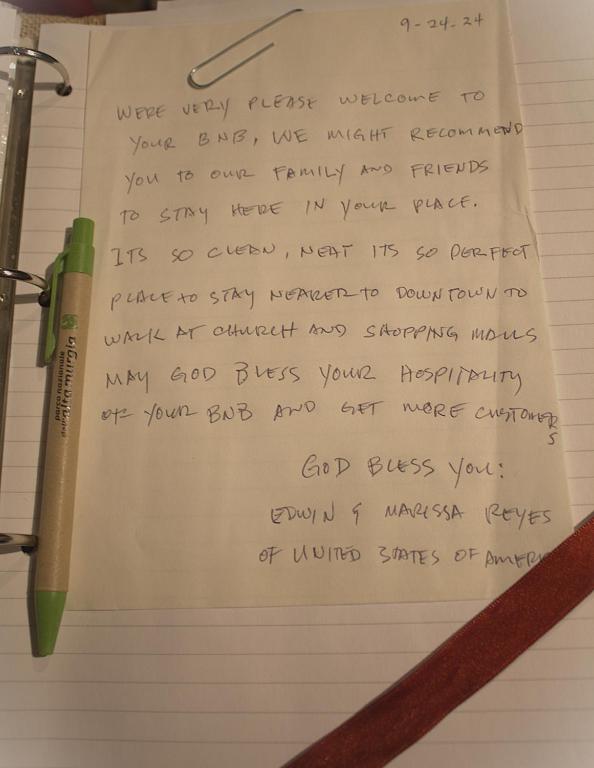 9-24-24
WERE VERY PLEASE WELCOME TO
YOUR BNB, WE MIGHT RECOMMEND
YOU TO OUR FAMILY AND FRIENDS
TO STAY HERE IN YOUR PLACE.
ITS SO CLEAN, NEAT ITS SO PERFECT
PLACE TO STAY NEARER TO DOWNTOWN TO
WALK AT CHURCH AND SHOPPING MALLS
MAY GOD BLESS YOUR HOSPITALITY
OF YOUR BNB AND GET MORE CUSTOMERS
GOD BLESS YOU:
EDWIN & MARISSA REYES
OF UNITED STATES OF AMERI